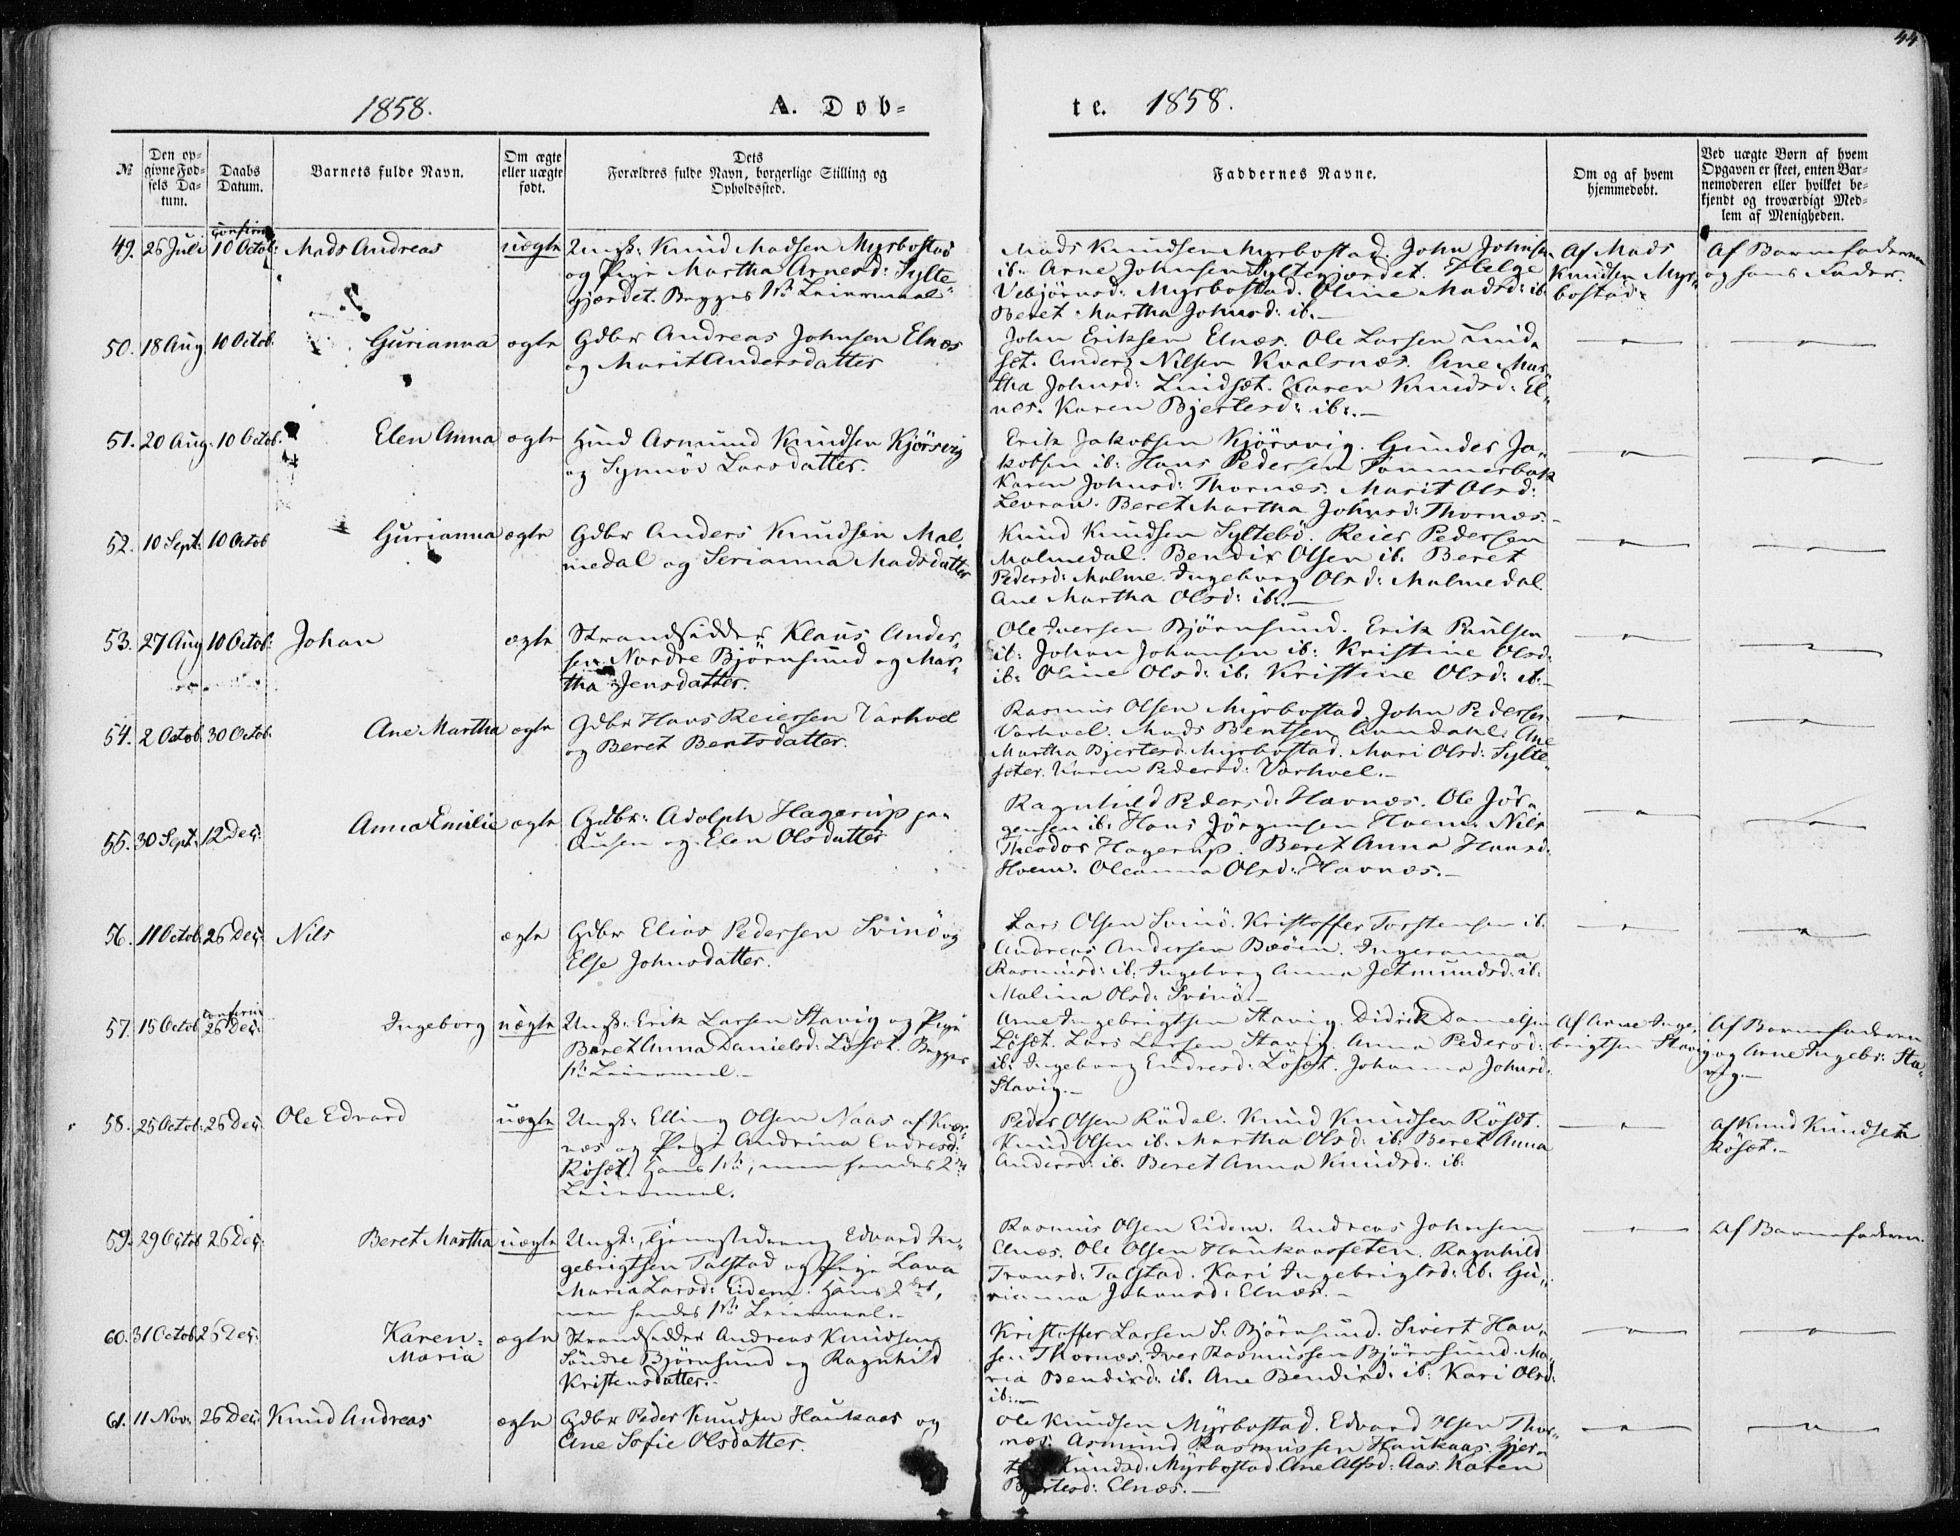 44
1858.
A. Døb=
te. 1858.
№
Den op=
givne Fød=
sels Da=
tum.
Daabs
Datum.
Barnets fulde Navn.
Om ægte
eller uægte
født.
Dets
Forældres fulde Navn, borgerlige Stilling og
Opholdssted.
Faddernes Navne.
Om og af hvem
hjemmedøbt.
Ved uægte Børn af hvem
Opgaven er skeet, enten Bar=
nemoderen eller hvilket be=
kjendt og troværdigt Med=
lem af Menigheden.
49. 26 Juli
confirm
10 Octob:
Mads Andreas
uægte
Ungk: Knud Madsen Myrbostad
og Pige Martha Arnesd: Sylte=
gjærdet. Begges 1ste Leiermaal
Mads Knudsen Myrbostad John Johnsen
ib: Arne Johnsen Syltegjærdet. Helge
Vebjörnsd: Myrbostad. Oline Madsd: ib
Beret Martha Johnsd: ib.—
Af Mads
Knudsen Myr=
bostad.
Af Barnefaderen
og hans Fader.
50. 18 Aug. 10 Octob.
Gurianna
ægte
Gdbr Andreas Johnsen Elnæs
og Marit Andersdatter
John Eriksen Elnæs. Ole Larsen Lind=
set. Anders Nilsen Kvalsnæs. Ane Mar=
tha Johnsd: Lindsæt. Karen Knudsd: El=
næs. Karen Bjertesd: ib:.—
51. 20 Aug. 10 Octob.
Elen Anna
ægte
Hmd Asmund Knudsen Kjörsvig
og Synnöv Larsdatter.
Erik Jakobsen Kjörsvig. Gunder Ja=
kobsen ib: Hans Pedersen Tommerbak
Karen Johnsd: Thornæs. Marit Olsd:
Levran. Beret Martha Johnsd: Thornæs.—
52. 10 Sept: 10 Octob
Gurianna
ægte
Gdbr Anders Knudsen Mal=
medal og Serianna Madsdatter
Knud Knudsen Syltebö. Reier Pedersen
Malmedal. Bendix Olsen ib. Beret
Pedersd: Malme. Ingeborg Olsd: Malmedal.
Ane Martha Olsd: ib:.—
53. 27 Aug 10 Octob:
Johan
ægte
Strandsidder Klaus Ander=
sen Nordre Björnsund og Mar=
tha Jensdatter.
Ole Iversen Björnsund. Erik Paulsen
ib: Johan Johansen ib: Kristine Olsd:
ib: Oline Olsd: ib. Kristine Olsd: ib.—
54. 2 Octob. 30 Octob.
Ane Martha
ægte
Gdbr Hans Reiersen Varhvel
og Beret Bentsdatter.
Rasmus Olsen Myrbostad John Pedersen
Varhvel. Mads Bentsen Aandahl: Ane
Martha Bjertesd: Myrbostad. Mari Olsd: Sylte=
seter. Karen Pedersd: Varhvel.—
55. 30 Sept: 12 Dec:
Anna Emilie
ægte
Gdbr: Adolph Hagerup Jan
Ausen og Elen Olsdatter
Ragnhild Pedersd: Havnæs. Ole Jör=
gensen ib: Hans Jörgensen Hoem. Nils
Theodor Hagerup. Beret Anna Hansd:
Hoem. Oleanna Olsd: Havnæs.—
56. 11 Octob: 26 Dec:
Nils
ægte
Gdbr Elias Pedersen Svinö og
Else Johnsdatter.
Lars Olsen Svinö. Kristoffer Torstensen ib.
Andreas Andersen Bæöen. Ingeranna
Rasmusd: ib: Ingeborg Anna Jetmundsd: ib.
Malina Olsd: Svinö.—
57. 15 Octob.
confirm
26 Dec:
Ingeborg
uægte
Ungk: Erik Larsen Stavig og Pige
Beret Anna Danielsd: Lösset. Begges
1ste Leiermaal.—
Arne Ingebrigtsen Stavig. Didrik Danielsen
Lösæt. Lars Larsen Stavig. Anna Pedersd:
ib. Ingeborg Endresd: Lösæt. Johanna Johnsd:
Stavig.—
Af Arne Inge=
brigtsen Stavig
Af Barnefaderen
og Arne Ingebr: Sta=
vig.—
58. 25 Octob: 26 Dec:
Ole Edvard
uægte
Ungk: Elling Olsen Naas af Kvær=
næs og Pige Andrina Endresd:
Rösæt. Hans 1ste, men hendes 2det
Leiermaal.
Peder Olsen Rödal. Knud Knudsen Rösæt.
Knud Olsen ib. Martha Olsd: ib. Beret Anna
Andersd: ib. Beret Anna Knudsd: ib.
Af Knud Knudsen
Rösæt.—
59. 29 Octob 26 Dec:
Beret Martha
uægte
Ungk: Tjenestedreng Edvard In=
gebrigtsen Talstad og Pige Lava
Maria Larsd: Eidem. Hans 2det,
men hendes 1ste Leiermaal.—
Rasmus Olsen Eidem. Andreas Johnsen
Elnæs. Ole Olsen Haukaasseten. Ragnhild
Tronsd: Talstad. Kari Ingebrigtsd: ib. Gu=
rianna Johansd: Elnæs.—
Af Barnefaderen.
60. 31 Octob 26 Dec:
Karen
Maria
ægte
Strandsidder Andreas Knudsen
Söndre Björnsund og Ragnhild
Kristensdatter.—
Kristoffer Larsen S. Björnsund. Sivert Han=
sen Thornæs. Iver Rasmussen Björnsund. Ma=
ria Bendixd: ib. Ane Bendixd: ib: Kari Olsd:
ib:—
61. 11 Nov: 26 Dec:
Knud Andreas
ægte
Gdbr Peder Knudsen Haukaas og
Ane Sofie Olsdatter.
Ole Knudsen Myrbostad. Edvard Olsen Thor=
næs. Asmund Rasmussen Haukaas. Gjer=
Knudsd: Myrbostad. Ane Olsd: Aas. Karen
Bjertesd: Elnæs.—